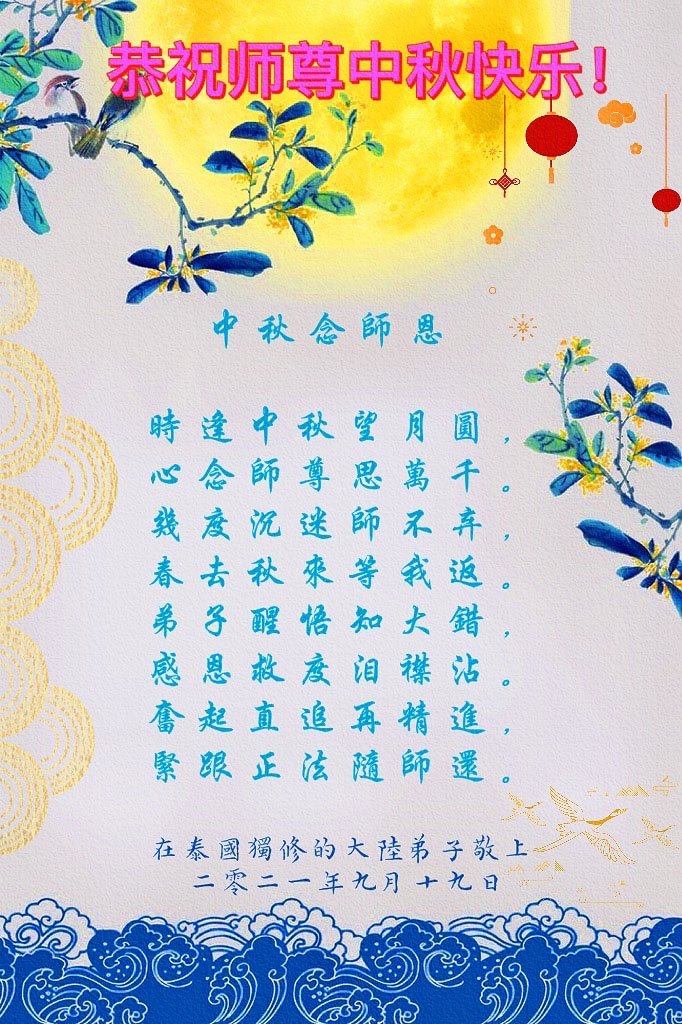 恭祝师尊中秋快乐！
中秋念師恩
時逢中秋望月圓，
心念師尊思萬千。
幾度沉迷師不弃，
春去秋來等我返。
弟子醒悟知大錯，
感恩救度泪襟沾。
奮起直追再精進，
緊跟正法隨師還。
在泰國獨修的大陸弟子敬上
二零二一年九月十九日